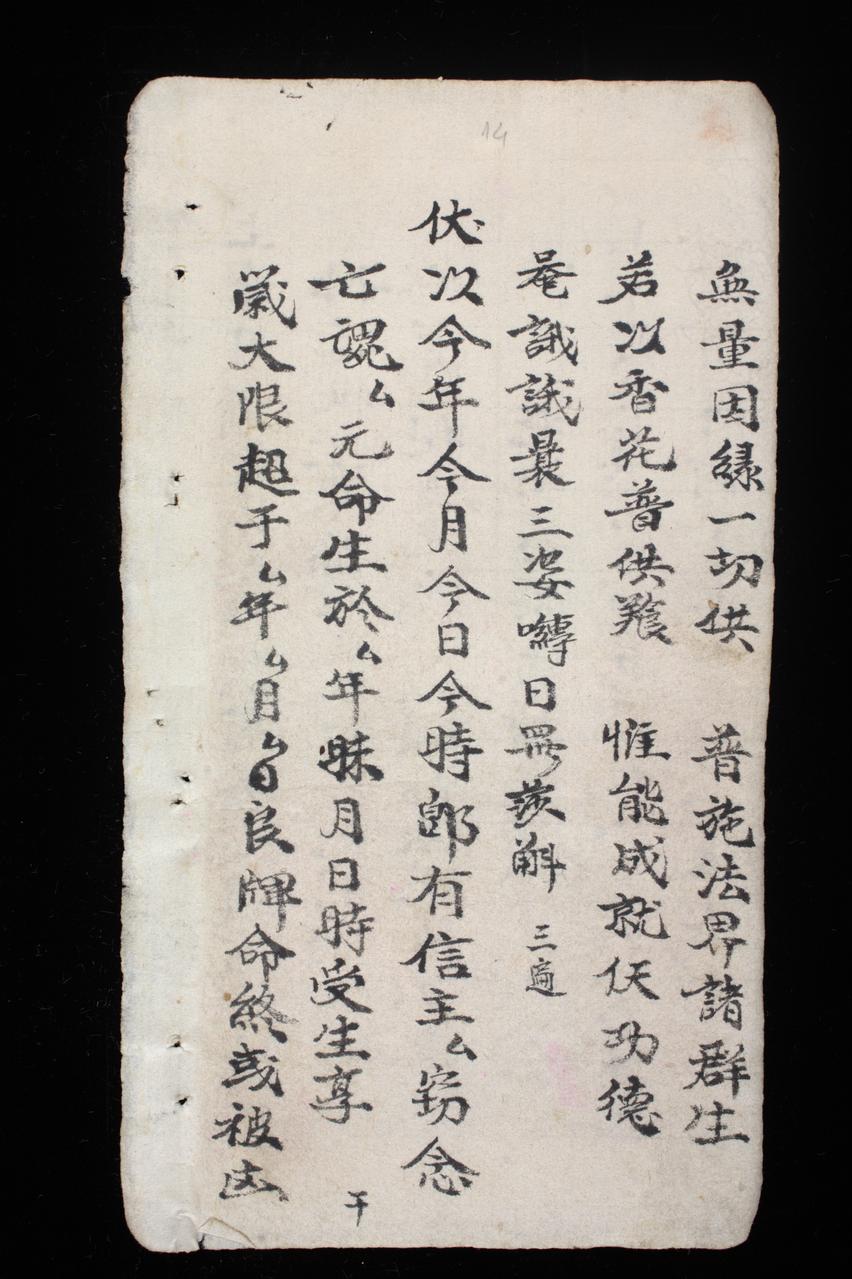 14
無量因緣一切供　普施法界諸群生
若以香花普供養　惟能成就伏功德
唵誐誐曩三婆嚩日囉斛　三遍
伏以今年今月今日今時郎有信主厶窃念
亡魂厶元命生於厶年月日時受生享干
歲大限超于厶年厶月厶日良牌命終或被凶